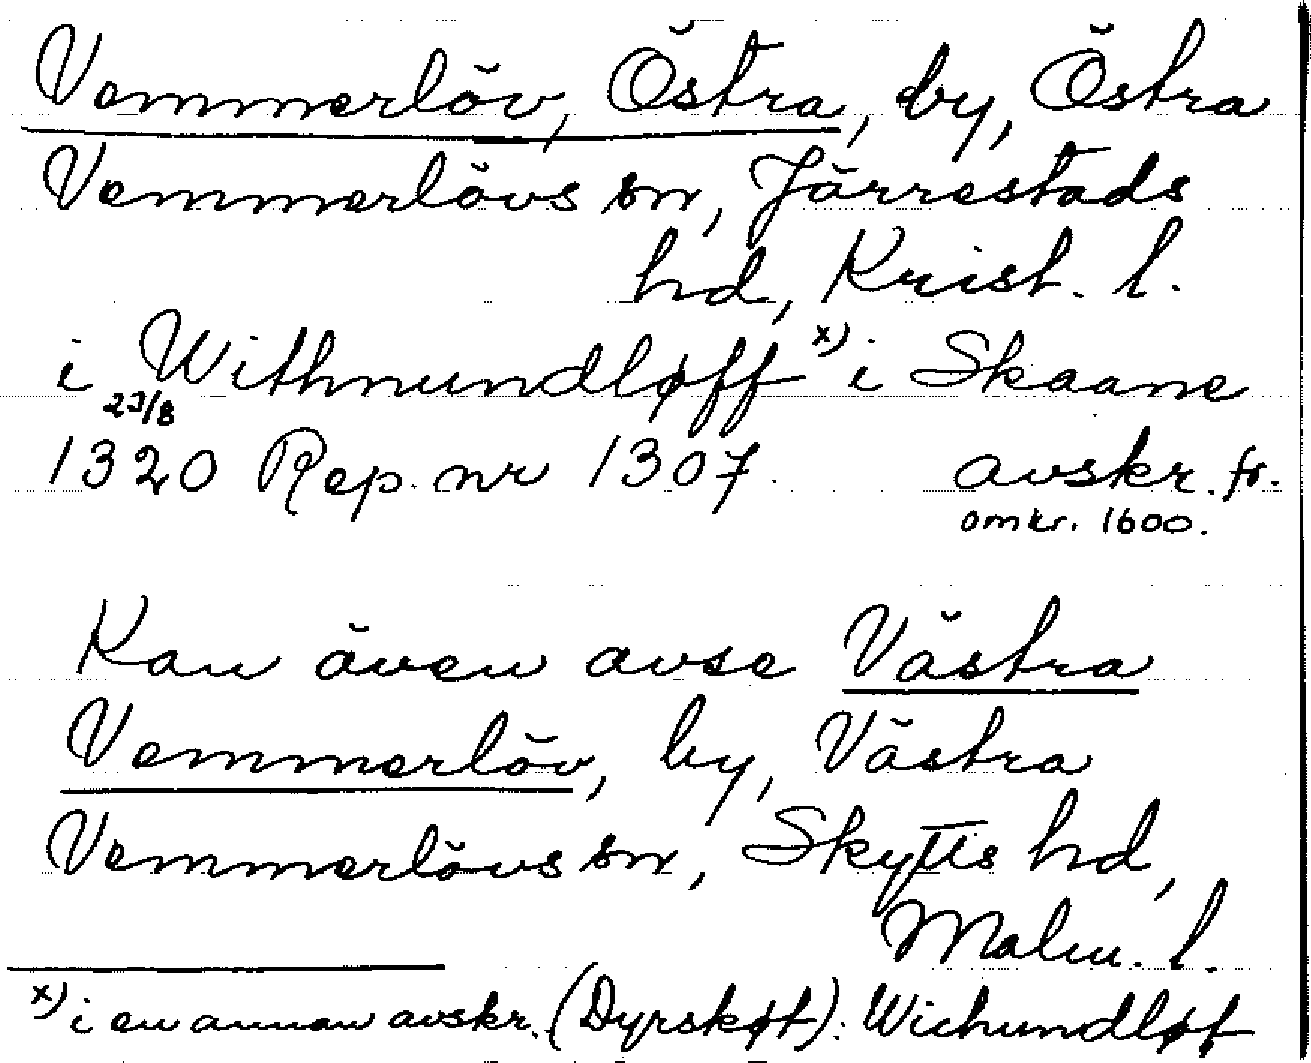 Vemmerlöv, Östra, by, Östra
Vemmerlövs sn, Järrestads
hd, Krist. l.
i Withnundløff x) i Skaane
23/8
1320 Rep. nr 1307. avskr. fr.
omkr. 1600.
Kan även avse Västra
Vemmerlöv, by, Västra
Vemmerlövs sn, Skytts hd,
Malm. l.
x) i en annan avskr. (Dyrskøt): Wichundløf